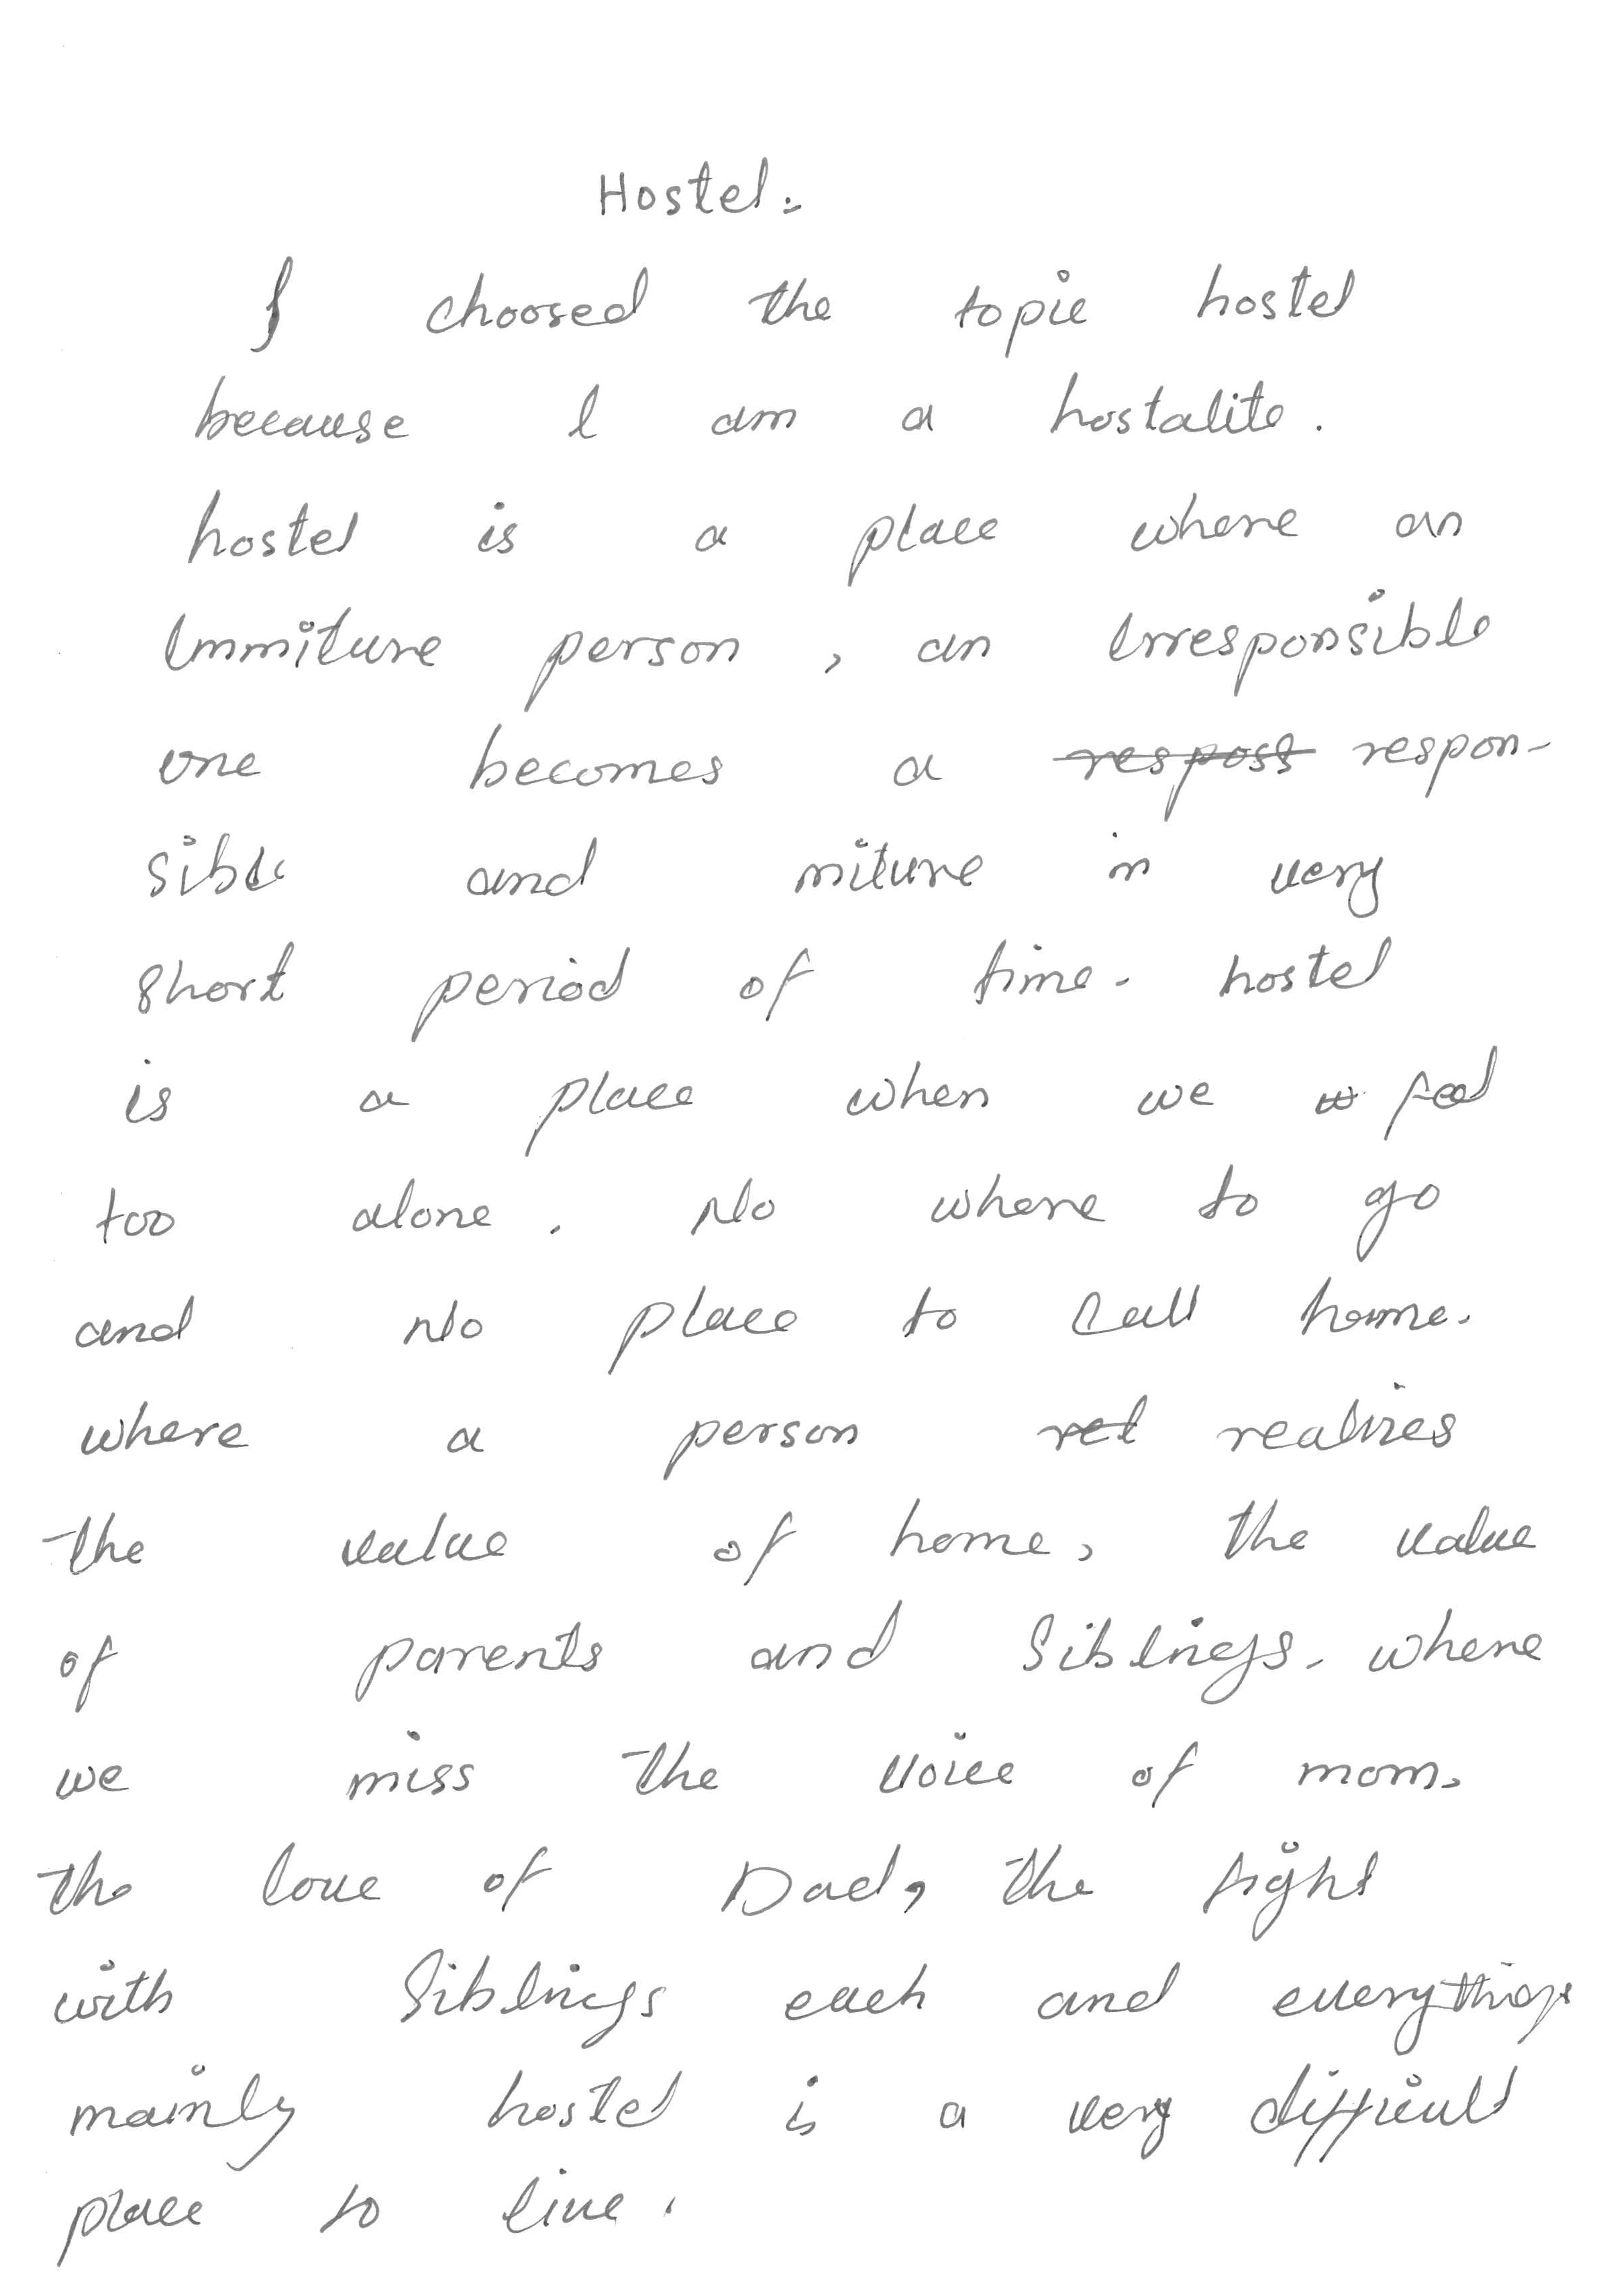 Hostel:
I choosed the topic hostel
because I am a hostalite.
hostel is a place where an
Immiture person, an Irresponsible
one becomes a respost respon-
sible and miture in very
short period of time. hostel
is a place when we w feel
too alone. No where to go
and No place to Call home.
where a person rel realizes
the value of home, the value
of parents and Siblings. where
we miss the voice of mom,
the love of Dad, the fight
with Siblings each and everything
mainly hostel is a very difficult
place to live.